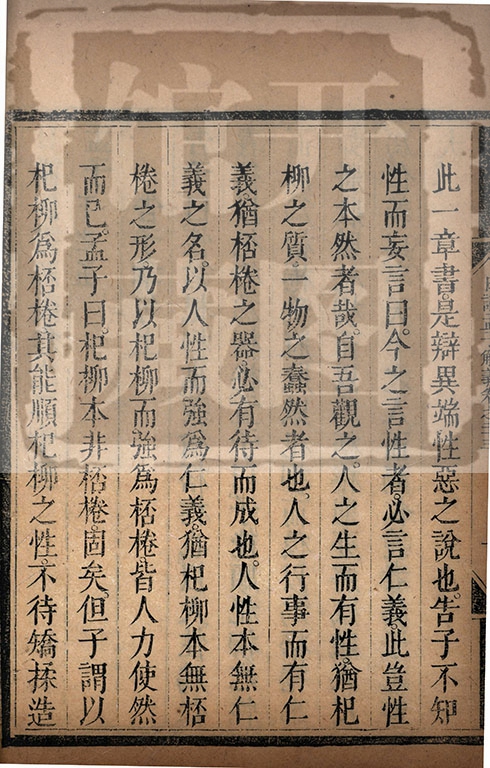 此一章書是辯異端性惡之說也告子不知
性而妄言曰今之言性者必言仁義此豈性
之本然者哉自吾觀之人之生而有性猶杞
柳之質一物之蠢然者也人之行事而有仁
義猶桮棬之器必有待而成也人性本無仁
義之名以人性而強爲仁義猶杞柳本無桮
棬之形乃以杞柳而強爲桮棬皆人力使然
而已孟子曰杞柳本非桮棬固矣但子謂以
杞柳爲桮棬其能順杞柳之性不待矯揉造